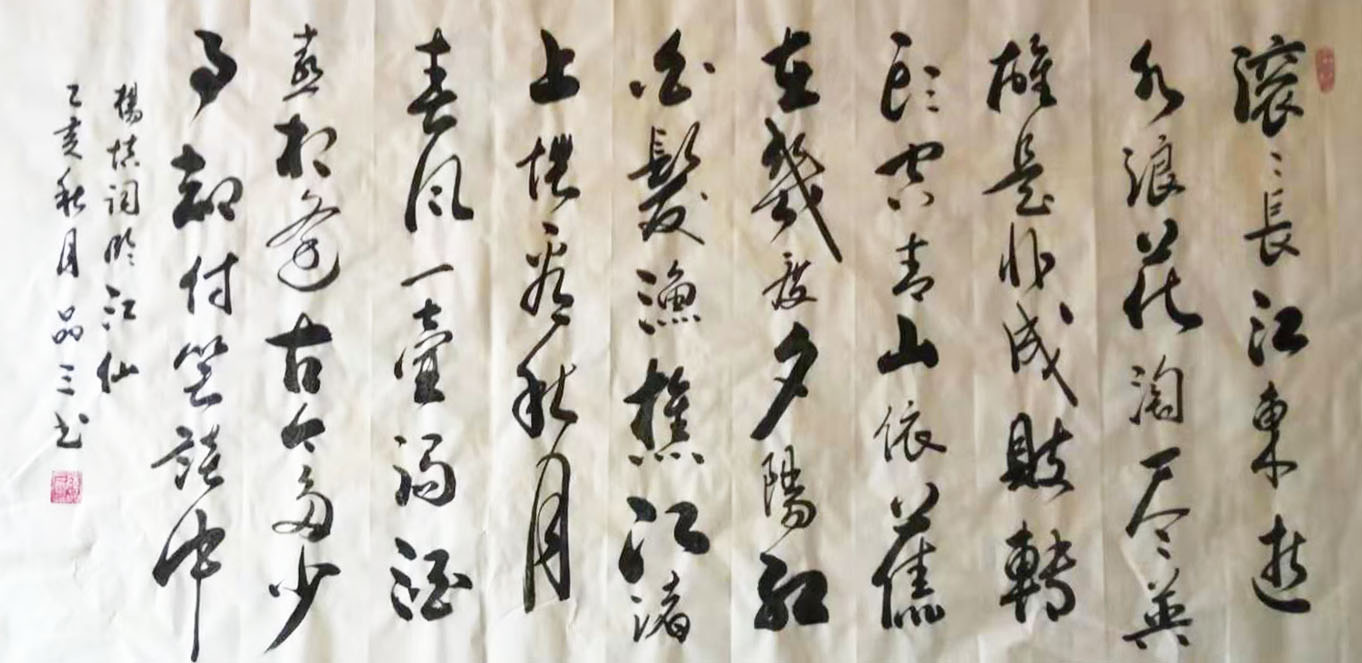 滚〻長江東逝
水浪花淘尽英
雄是非成敗轉
頭空青山依舊
在幾度夕陽紅
白髮漁樵江渚
上慣看秋月
春风一壺濁酒
喜相逢古今多少
事都付笑談中
楊慎词临江仙
己亥秋月品三书